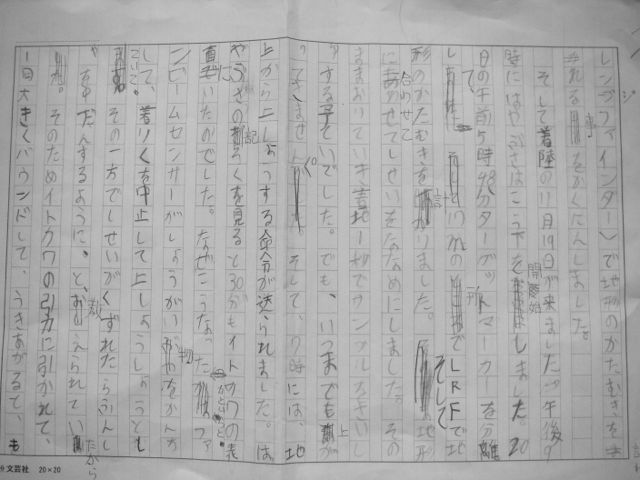 レンジファインダー)で地形のかたむきを
きれる事をかくにんしました。
そして着陸の11月19日が来ました。午後9
時にはやぶさはこう下を開始しました。20
日の午前5時48分ターゲットマーカーを分離
して、 でLRFで地
形のかたむきを計りました。そして地形
に合わせてしせいをななめにしました。その
ままおりていき着地一秒でサンプルをさいし
ゅする予ていでした。でも、いつまでも上が
ってきません。そして、7時には、地
上から上しょうする命令が送られました。は
やぶさの記ろくを見ると30分もイトカワの表
面にいたのでした。なぜこうなったかというと、ファ
ンビームセンサーがしょうがい物をかんち
して、着りくを中止して上しょうしようとし
ていて。その一方でしせいがくずれたらふんし
ゃを中だんするように、と、教えられていたから
だ。そのためイトカワの引力に引かれて、
1回大きくバウンドして、うきあがると、も
文芸社 20×20